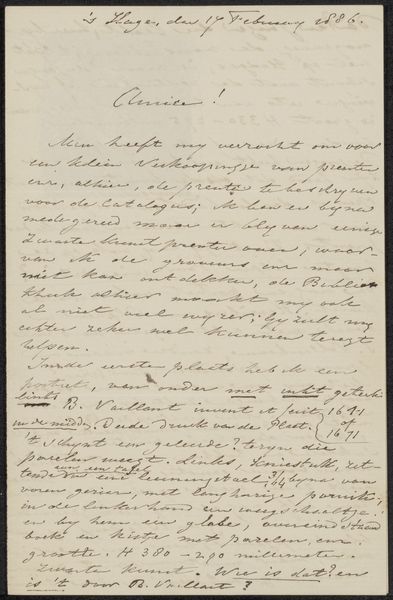 's Hage, den 17 February 1886.
Amice!
Men heeft my verzocht om voor
een klein Verkoopingje van prenten
enz, alhier, de prenten te beschryven
voor de Catalogus; Ik ben er byna
mede gereed maar er blyven eenige
zwarte kunst prenten over, waar-
van ik de graveurs enz maar
niet kan ontdekken, de Biblio
theek alhier maakt my ook
al niet veel wyzer; Gy zult my
echter zeker wel kunnen terecht
helpen.
In de eerste plaats heb ik een
portret, van onder met inkt geteek
links B. Vaillant invent et fecit 1671
of
in de midden Oude druk van de Plaat. 1671
't schynt een geleerde? te zyn die
paarlen weegt. Links, kniestuk, zit-
tende in een leuningstoel, 3/4 byna van
aan een tafel
voren gezien, met langharige pruik,
in de linkerhand een weegschaaltje
en by hem een globe, overeind staand
boek en kistje met paarlen, enz.
grootte. H 380 - 290 millimeter.
Zwarte kunst. Wie is dat? en
is 't door B. Vaillant?